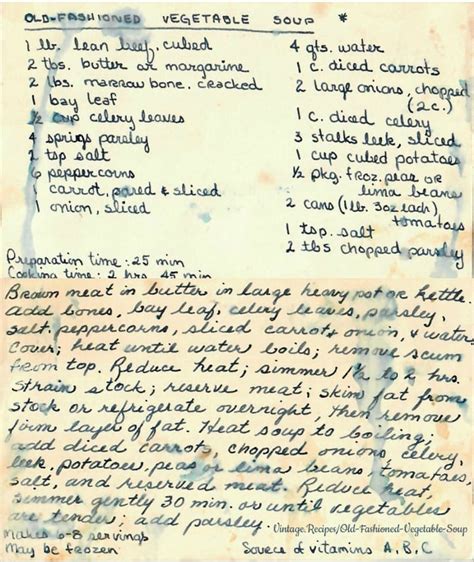 OLD-FASHIONED VEGETABLE SOUP *
1 lb. lean beef, cubed
2 tbs. butter or margarine
2 lbs. marrow bone, cracked
1 bay leaf
½ cup celery leaves
4 sprigs parsley
2 tsp salt
6 peppercorns
1 carrot, pared & sliced
1 onion, sliced
4 qts. water
1 c. diced carrots
2 large onions, chopped
(2 c.)
1 c. diced celery
3 stalks leek, sliced
1 cup cubed potatoes
½ pkg. froz. peas or
lima beans
2 cans (1 lb. 3oz each)
tomatoes
1 tsp. salt
2 tbs chopped parsley
Preparation time: 25 min
Cooking time: 2 hrs 45 min
Brown meat in butter in large heavy pot or kettle.
add bones, bay leaf, celery leaves, parsley,
salt, peppercorns, sliced carrot & onion, & water,
Cover; heat until water boils; remove scum
from top. Reduce heat; simmer 1½ to 2 hrs.
Strain stock; reserve meat; skim fat from
stock or refrigerate overnight, then remove
firm layer of fat. Heat soup to boiling;
add diced carrots, chopped onions, celery,
leek, potatoes, peas or lima beans, tomatoes,
salt, and reserved meat. Reduce heat,
simmer gently 30 min. or until vegetables
are tender; add parsley. · Vintage.Recipes/Old-Fashioned-Vegetable-Soup
Makes 6-8 servings
May be frozen
Source of vitamins A, B, C